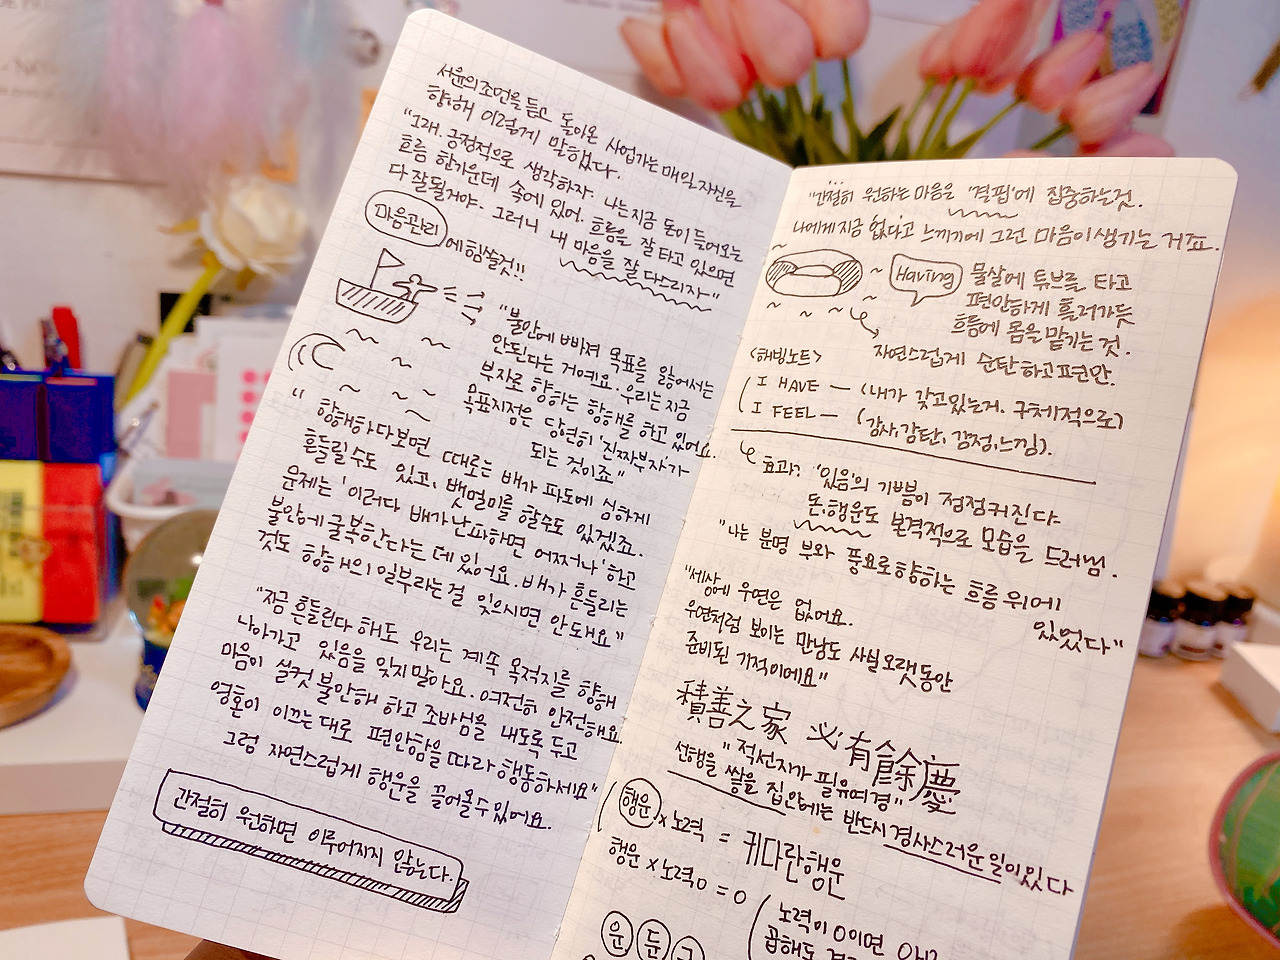 서윤의 조언을 듣고 돌아온 사업가는 매일 자신을
향해 이렇게 말했다.
"그래. 긍정적으로 생각하자. 나는 지금 돈이 들어오는
흐름 한가운데 속에 있어. 흐름을 잘 타고 있으면
다 잘될거야. 그러니 내 마음을 잘 다스리자"
마음관리에 힘쓸것!!
"불안에 빠져 목표를 잃어서는
안된다는 거예요. 우리는 지금
부자로 향하는 항해를 하고 있어요.
목표지점은 당연히 '진짜부자'가
되는 것이죠"
"항해하다보면 때로는 배가 파도에 심하게
흔들릴 수도 있고, 뱃멀미를 할수도 있겠죠.
문제는 '이러다 배가 난파하면 어쩌나' 하고
불안에 굴복한다는 데 있어요. 배가 흔들리는
것도 항해의 일부라는 걸 잊으시면 안돼요"
"잠금 흔들린다 해도 우리는 계속 목적지를 향해
나아가고 있음을 잊지말아요. 여전히 안전해요.
마음이 실컷 불안해 하고 조바심을 내도록 두고
영혼이 이끄는 대로 편안함을 따라 행동하세요"
그럼 자연스럽게 행운을 끌어올수 있어요.
간절히 원하면 이루어지지 않는다.
"간절히 원하는 마음은 '결핍'에 집중하는 것.
나에게 지금 없다고 느끼기에 그런 마음이 생기는 거죠.
Having
물살에 튜브를 타고
편안하게 흘러가듯
흐름에 몸을 맡기는 것.
자연스럽게 순탄하고 편안.
<해빙노트>
I HAVE — (내가 갖고있는거. 구체적으로)
I FEEL — (감사, 감탄, 감정, 느낌).
효과? '있음'의 기쁨이 점점 커진다.
돈, 행운도 본격적으로 모습을 드러냄.
"나는 분명 부와 풍요로 향하는 흐름 위에
있었다"
"세상에 우연은 없어요.
우연처럼 보이는 만남도 사실 오랫동안
준비된 기적이에요"
積善之家 必有餘慶
"적선지가 필유여경"
선행을 쌓을 집안에는 반드시 경사스러운 일이 있다
행운 x 노력 = 커다란 행운
행운 x 노력0 = 0
노력이 0이면
곱해도
운 둔